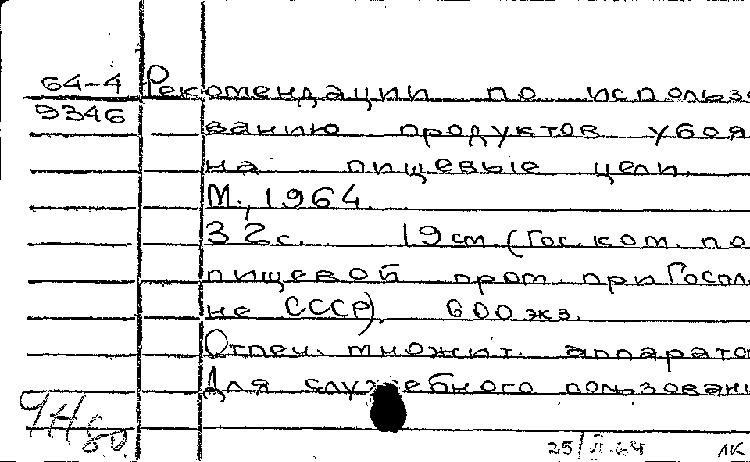 64-4 Рекомендации по использо
9346 ванию продуктов убоя
на пищевые цели.
М., 1964.
32с. 19см. (Гос. ком. по
пищевой пром. при Госпла
не СССР). 600 экз.
Отпеч. множит. аппарато
Для служебного пользовани
25/ 64 ЛК